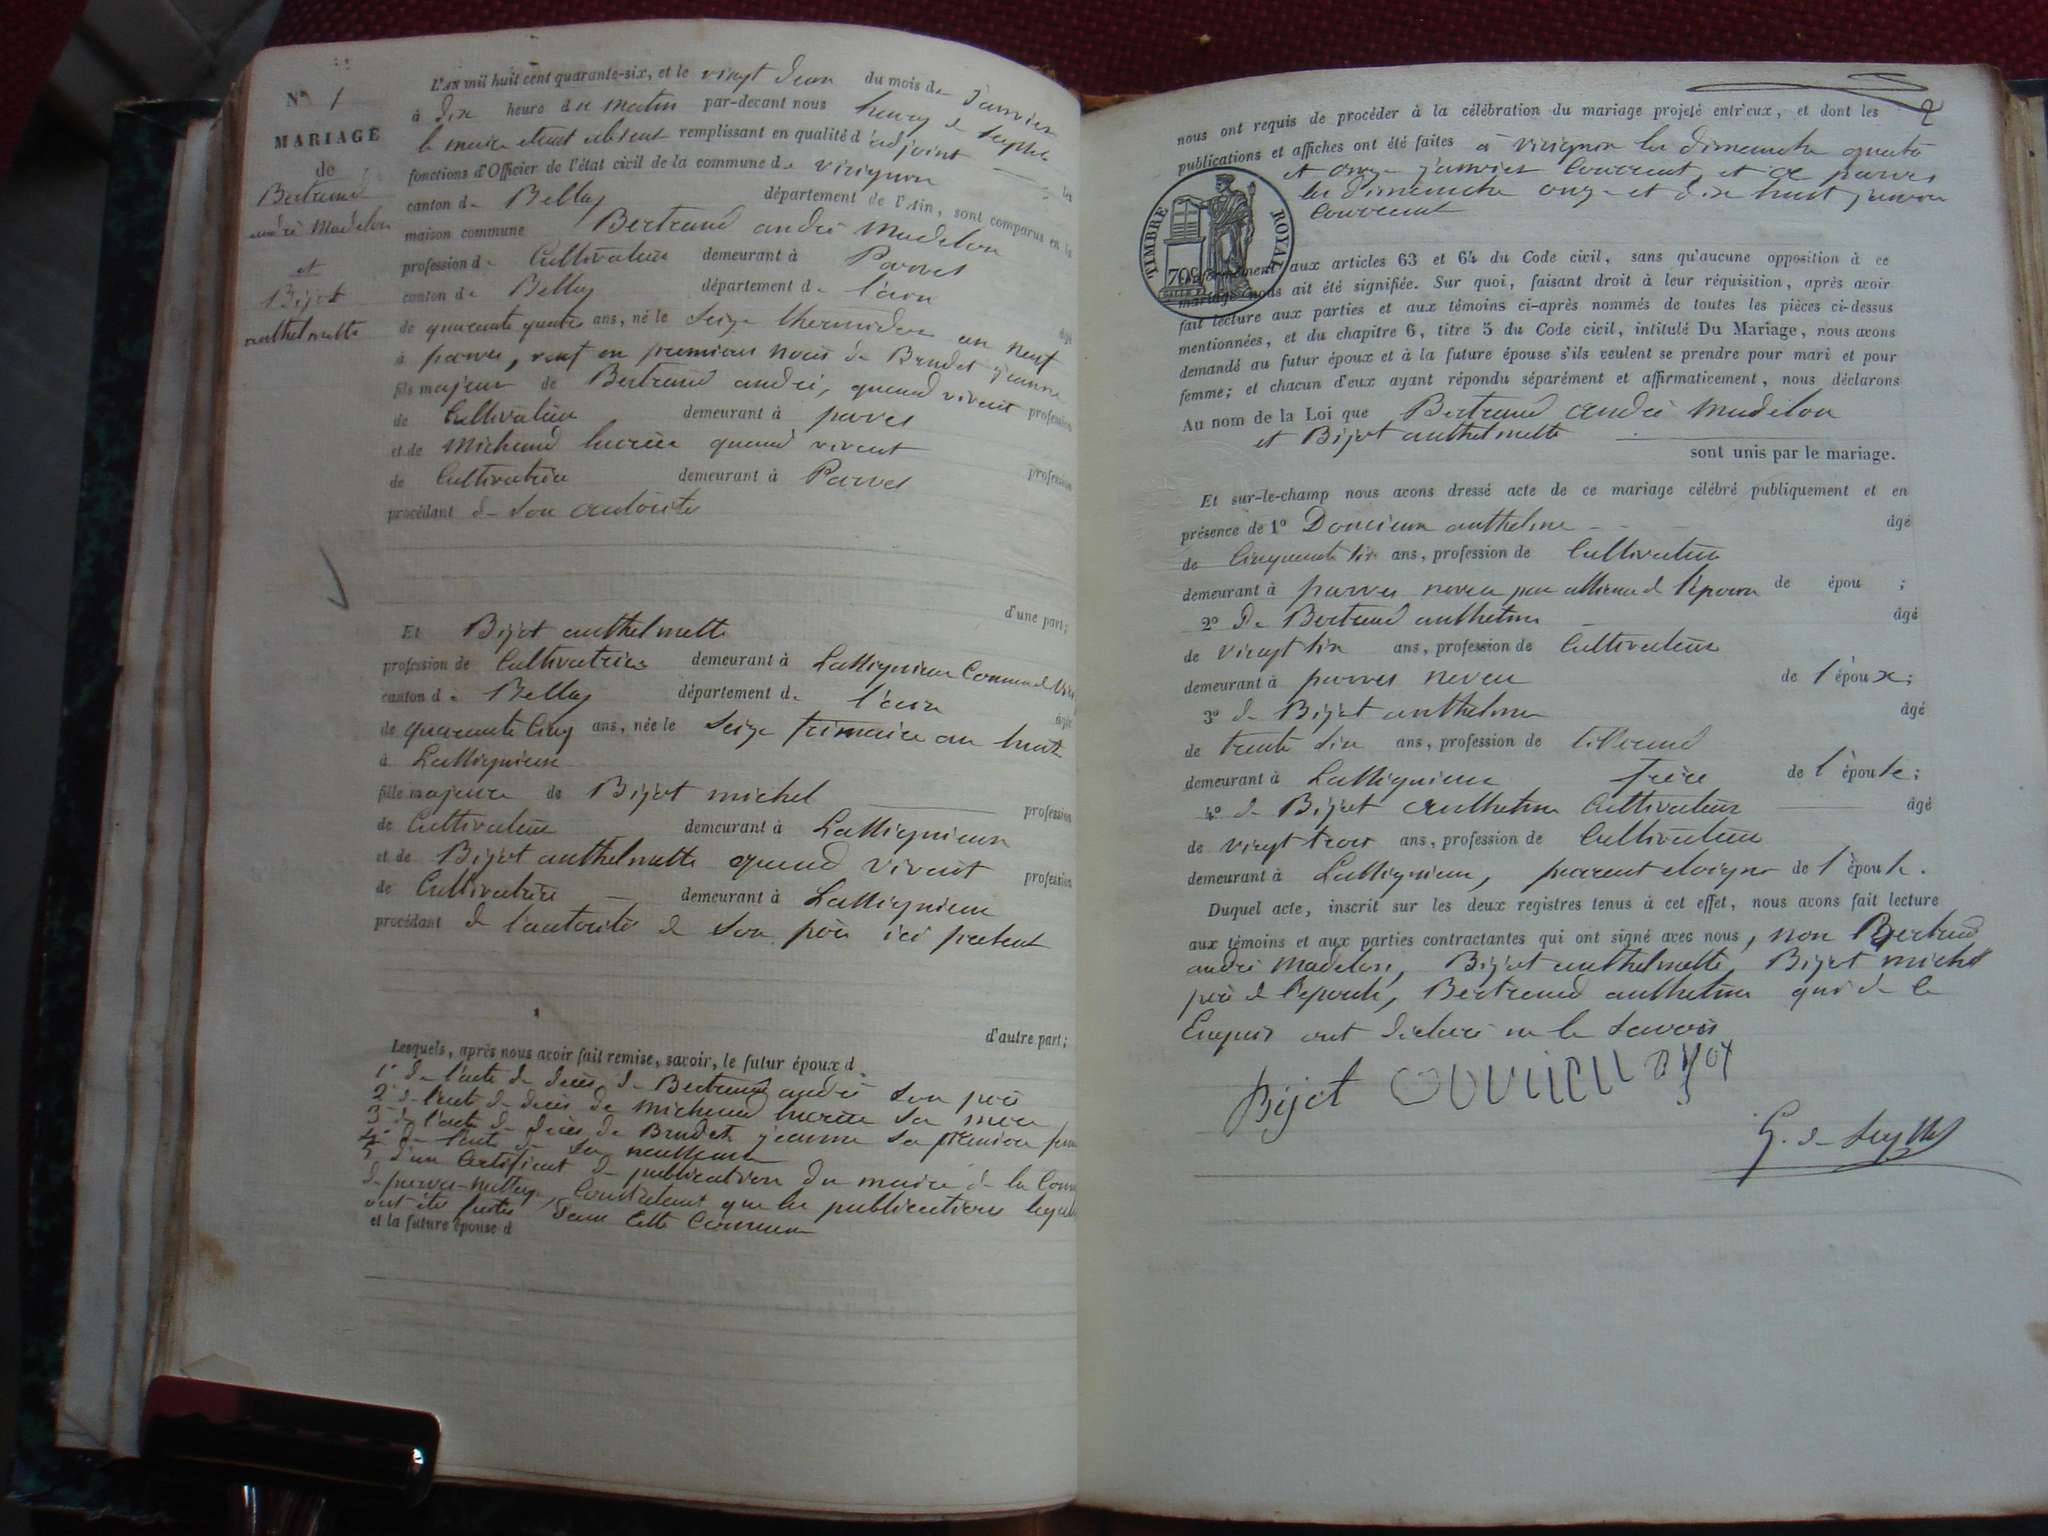 N° 1
MARIAGE
de
Bertrand
andré Madelon
et
Bijot
anthelmette
L'AN mil huit cent quarante-six, et le vingt deux du mois de Janvier
à dix heure du matin par-devant nous henry de Seyssel
le maire étant absent remplissant en qualité d'adjoint les
fonctions d'Officier de l'état civil de la commune de virignin
canton de Belley département de l'Ain, sont comparus en la
maison commune Bertrand andré Madelon
profession de Cultivateur demeurant à Parves
canton de Belley département de l'ain
âgé de quarante quatre ans, né le Seize thermidor an neuf
à parves, veuf en premieres noces de Brudet jeanne
fils majeur de Bertrand andré, quand vivait profession
de Cultivateur demeurant à parves
et de Michaud lucrèce quand vivait profession
de Cultivatrice demeurant à Parves
procédant de son autorité
d'une part;
Et Bijot anthelmette
profession de Cultivatrice demeurant à Lassignieu Commune de Viri
canton de Belley département de l'ain
âgée de quarante Cinq ans, née le Seize frimaire an huit
à Lassignieu
fille majeure de Bijot michel profession
de Cultivateur demeurant à Lassignieu
et de Bijot anthelmette quand vivait profession
de Cultivatrice demeurant à Lassignieu
procédant de l'autorité de son père ici présent
d'autre part;
Lesquels, après nous avoir fait remise, savoir, le futur époux d
1° de l'acte de décès de Bertrand andré son père
2° de l'acte de décès de Michaud lucrèce sa mère
3° de l'acte de décès de Brudet jeanne sa première fem
4° de l'acte de sa naissance
5° d'un Certificat de publication du maire de la Com
de parves-nattage Constatant que les publications légal
ont été faites dans Cette Commune
et la future épouse d
2
nous ont requis de procéder à la célébration du mariage projeté entr'eux, et dont les
publications et affiches ont été faites à Virignin les dimanche quatre
et onze janvier Courant, et a parves
les dimanche onze et dix huit janvier
Courant
TIMBRE ROYAL
70c
aux articles 63 et 64 du Code civil, sans qu'aucune opposition à ce
mariage nous ait été signifiée. Sur quoi, faisant droit à leur réquisition, après avoir
fait lecture aux parties et aux témoins ci-après nommés de toutes les pièces ci-dessus
mentionnées, et du chapitre 6, titre 5 du Code civil, intitulé Du Mariage, nous avons
demandé au futur époux et à la future épouse s'ils veulent se prendre pour mari et pour
femme; et chacun d'eux ayant répondu séparément et affirmativement, nous déclarons
Au nom de la Loi que Bertrand andré Madelon
et Bijot anthelmette
sont unis par le mariage.
Et sur-le-champ nous avons dressé acte de ce mariage célébré publiquement et en
présence de 1° Doucieux anthelme âgé
de Cinquante six ans, profession de Cultivateur
demeurant à parves neveu par alliance de l'époux de épou ;
2° De Bertrand anthelme âgé
de vingt six ans, profession de Cultivateur
demeurant à parves neveu de l'époux;
3° de Bijot anthelme âgé
de trente six ans, profession de tisserand
demeurant à Lassignieu frère de l'épouse;
4° de Bijot anthelme Cultivateur âgé
de vingt trois ans, profession de Cultivateur
demeurant à Lassignieu, parent éloigné de l'épouse.
Duquel acte, inscrit sur les deux registres tenus à cet effet, nous avons fait lecture
aux témoins et aux parties contractantes qui ont signé avec nous, non Bertrand
andré Madelon, Bijot anthelmette, Bijot michel
père de l'épouse, Bertrand anthelme qui de ce
Enquis ont déclaré ne le savoir
Bijot
G. de Seyssel